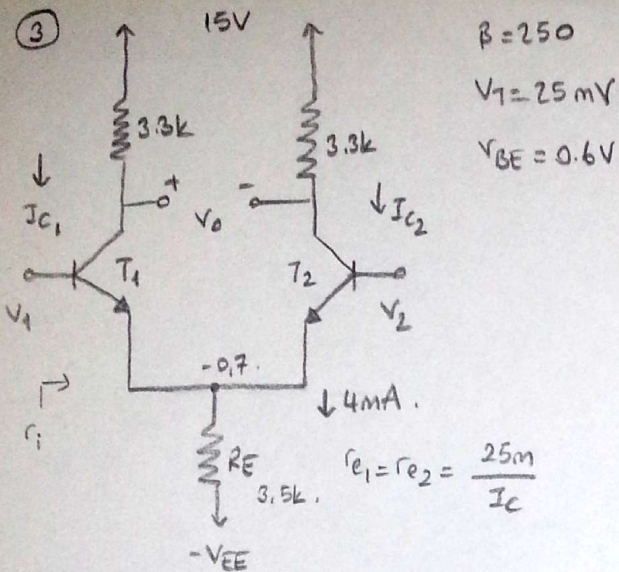 3
15V
β=250
V_T=25mV
V_BE=0.6V
3.3k
3.3k
I_C1
+
V_o
-
I_C2
T_1
T_2
V_1
V_2
-0,7.
4mA.
r_i
R_E
3,5k.
r_e1=r_e2= 25m
I_C
-V_EE